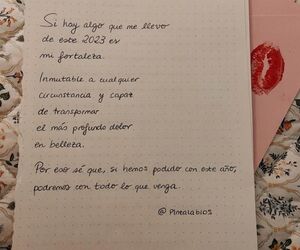 Si hay algo que me llevo
de este 2023 es
mi fortaleza.
Inmutable a cualquier
circunstancia y capaz
de transformar
el más profundo dolor
en belleza.
Por eso sé que, si hemos podido con este año,
podremos con todo lo que venga.
@Pintalabios